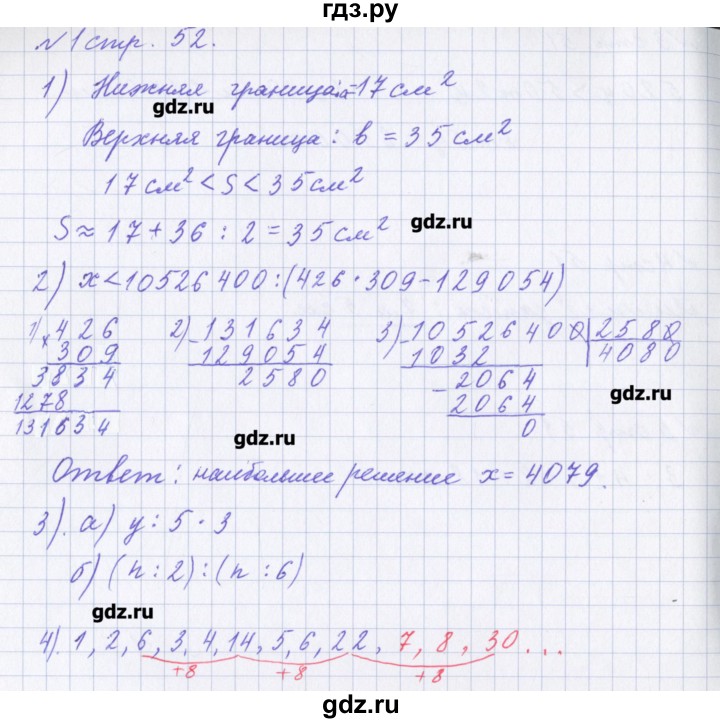 гдз.ру
№1 стр. 52.
1) Нижняя граница: a = 17 см²
gdz.ru
Верхняя граница: в = 35 см²
17 см² < S < 35 см²
gdz.ru
S ≈ 17 + 36 : 2 = 35 см²
2) x < 10526400 : (426 · 309 - 129054)
1) 426 2) 131634 3) 10526400 | 2580
× 309 - 129054 - 1032 4080
3834 2580 - 2064
1278 2064
131634 0
gdz.ru
gdz.ru
Ответ: наибольшее решение x = 4079.
3). а) y : 5 · 3
б) (n : 2) : (n : 6)
gdz.ru
4). 1, 2, 6, 3, 4, 14, 5, 6, 22, 7, 8, 30...
+8 +8 +8
gdz.ru